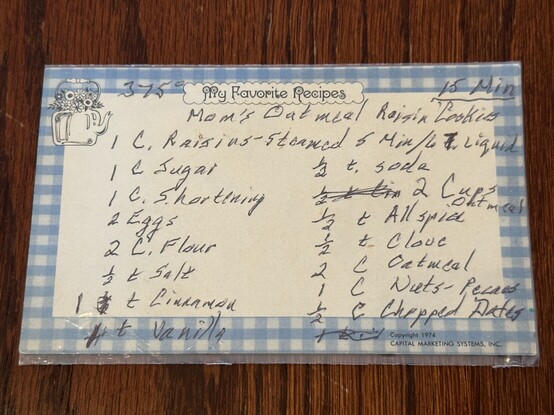 375° My Favorite Recipes 15 Min
Mom's Oatmeal Raisin Cookies
1 C. Raisins-Steamed 5 Min/6 T. Liquid
1 C Sugar
1 C. Shortening
2 Eggs
2 C. Flour
½ t Salt
1 t Cinnamon
t Vanilla
½ t. soda
2 Cups Oatmeal
½ t Allspice
½ t Clove
2 C Oatmeal
1 C Nuts-Pecans
½ C Chopped Dates
Copyright 1974
CAPITAL MARKETING SYSTEMS, INC.